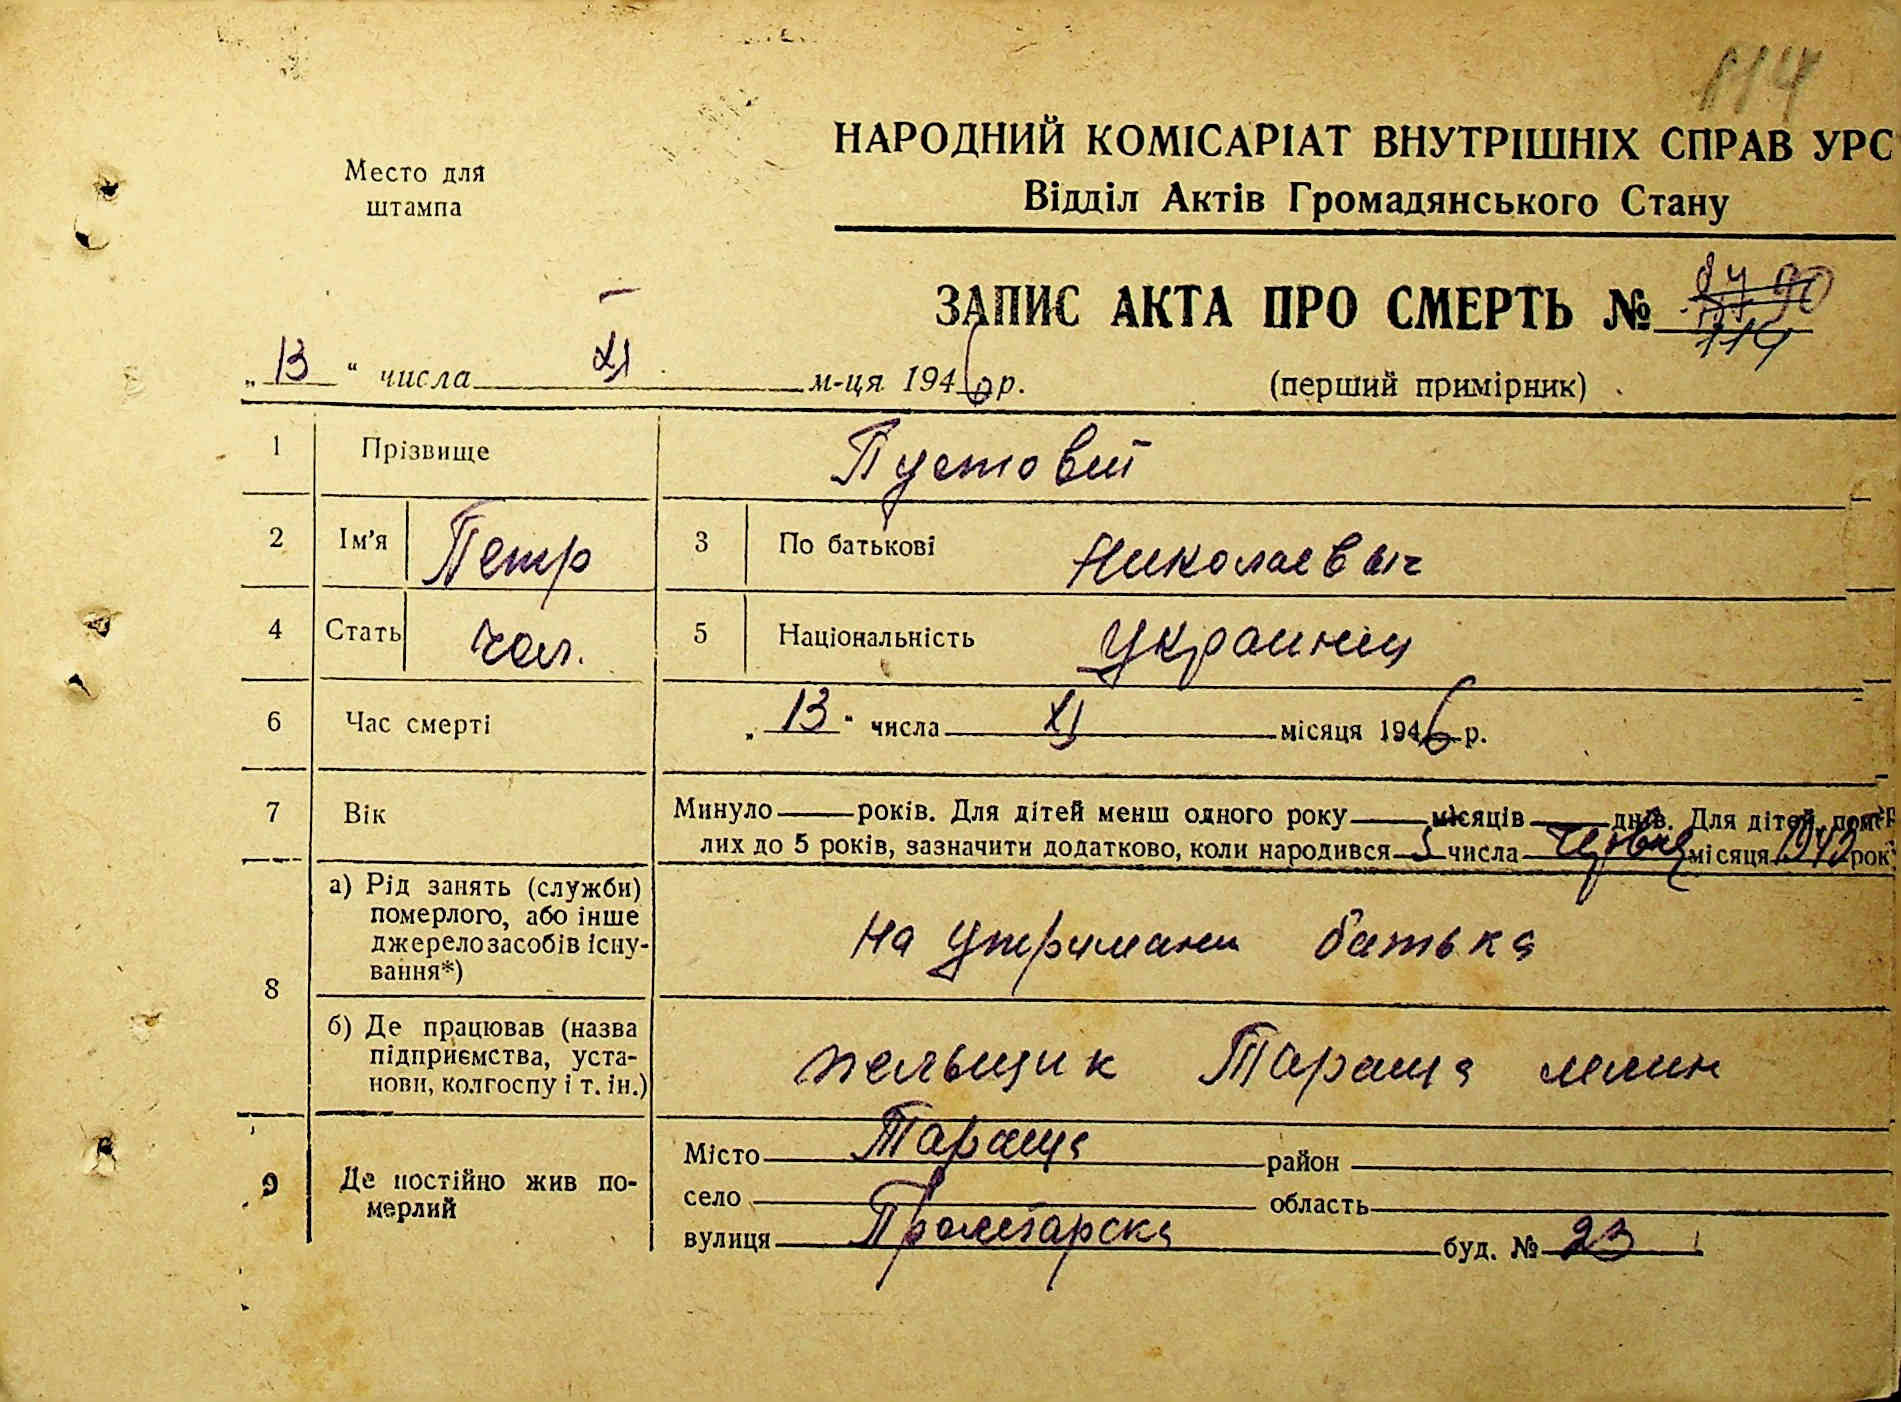 114
НАРОДНИЙ КОМІСАРІАТ ВНУТРІШНІХ СПРАВ УРС
Место для штампа
Відділ Актів Громадянського Стану
ЗАПИС АКТА ПРО СМЕРТЬ № 90 114
„13“ числа XI м-ця 1946 р. (перший примірник)
1 Прізвище Пустовій
2 Ім'я Петр 3 По батькові Николаевыч
4 Стать чол. 5 Національність Украинец
6 Час смерті „13“ числа XI місяця 1946 р.
7 Вік Минуло років. Для дітей менш одного року місяців днів. Для дітей, помер
лих до 5 років, зазначити додатково, коли народився 5 числа червня місяця 1943 рок
8 а) Рід занять (служби)
померлого, або інше
джерело засобів існу-
вання*)
на утримани батька
б) Де працював (назва
підприємства, уста-
нови, колгоспу і т. ін.)
Тараща млин
9 Де постійно жив по-
мерлий
Місто Тараща район
село область
вулиця Пролетарска буд. № 23